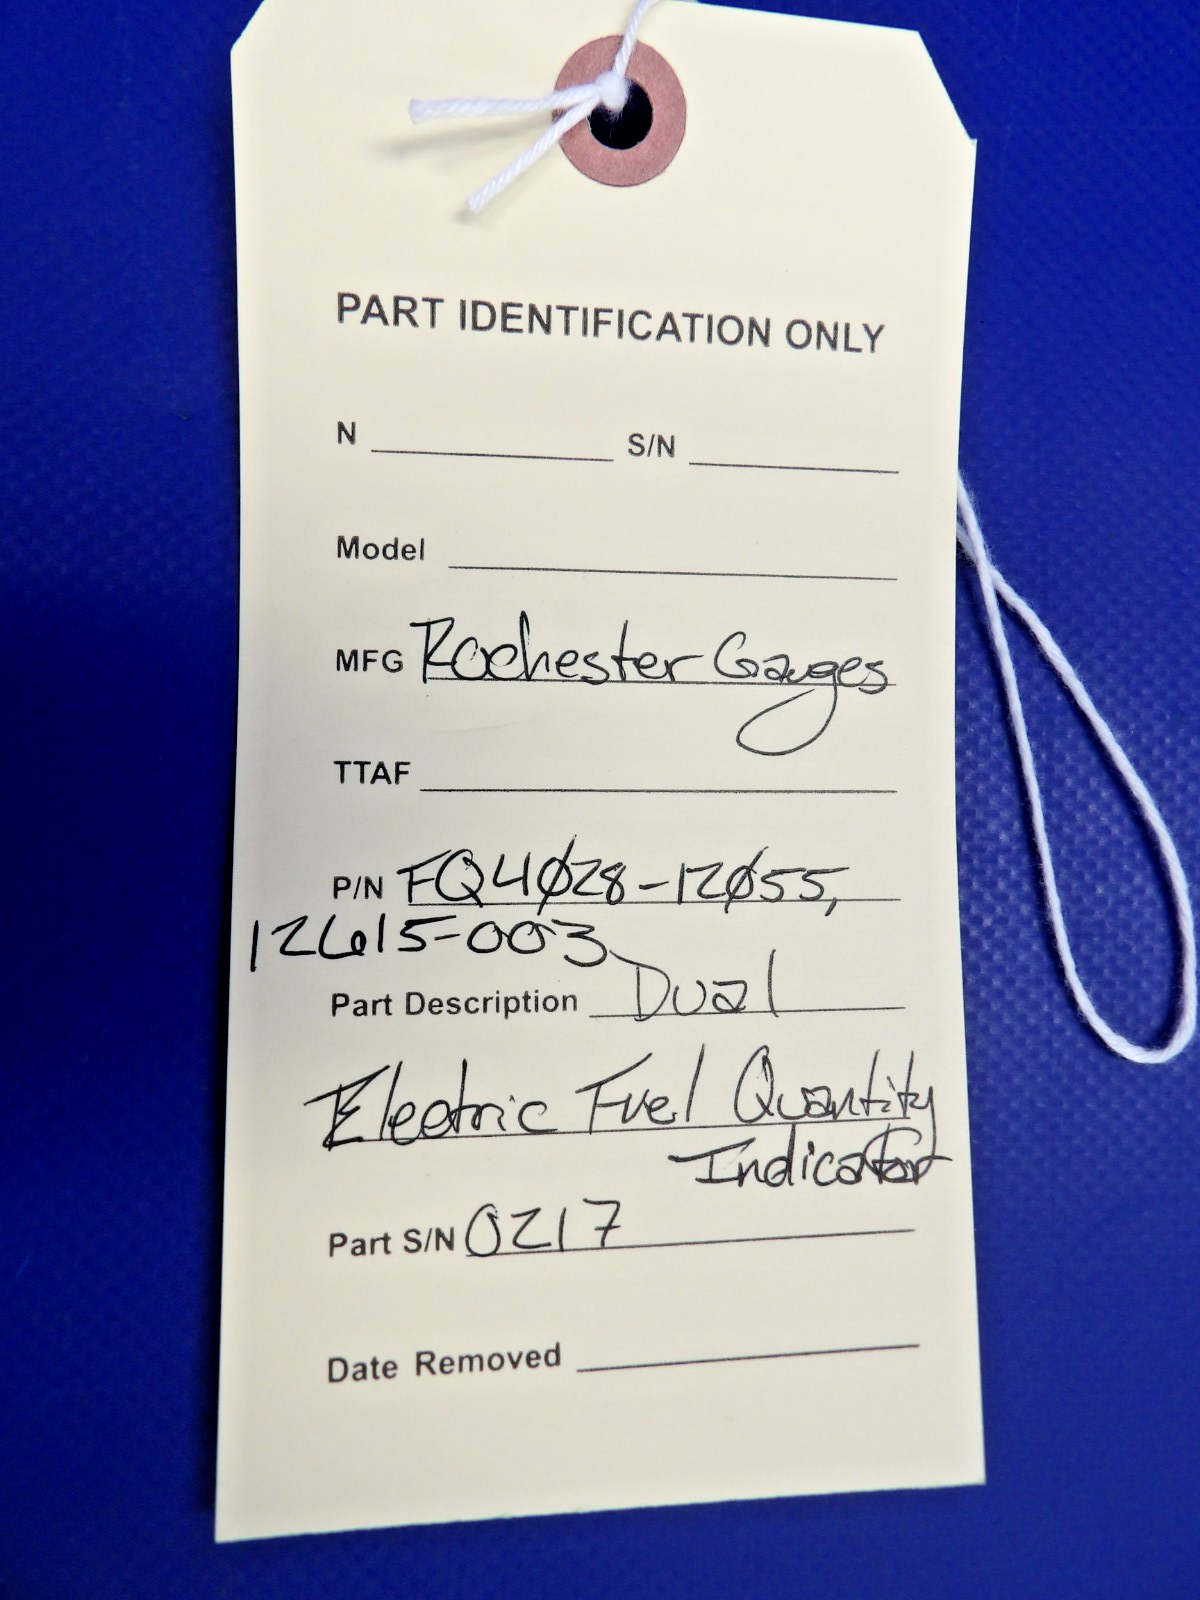 PART IDENTIFICATION ONLY
N S/N
Model
MFG Rochester Gauges
TTAF
P/N FQ4Ø28-12Ø55,
12615-003
Part Description Dual
Electric Fuel Quantity
Indicator
Part S/N 0217
Date Removed